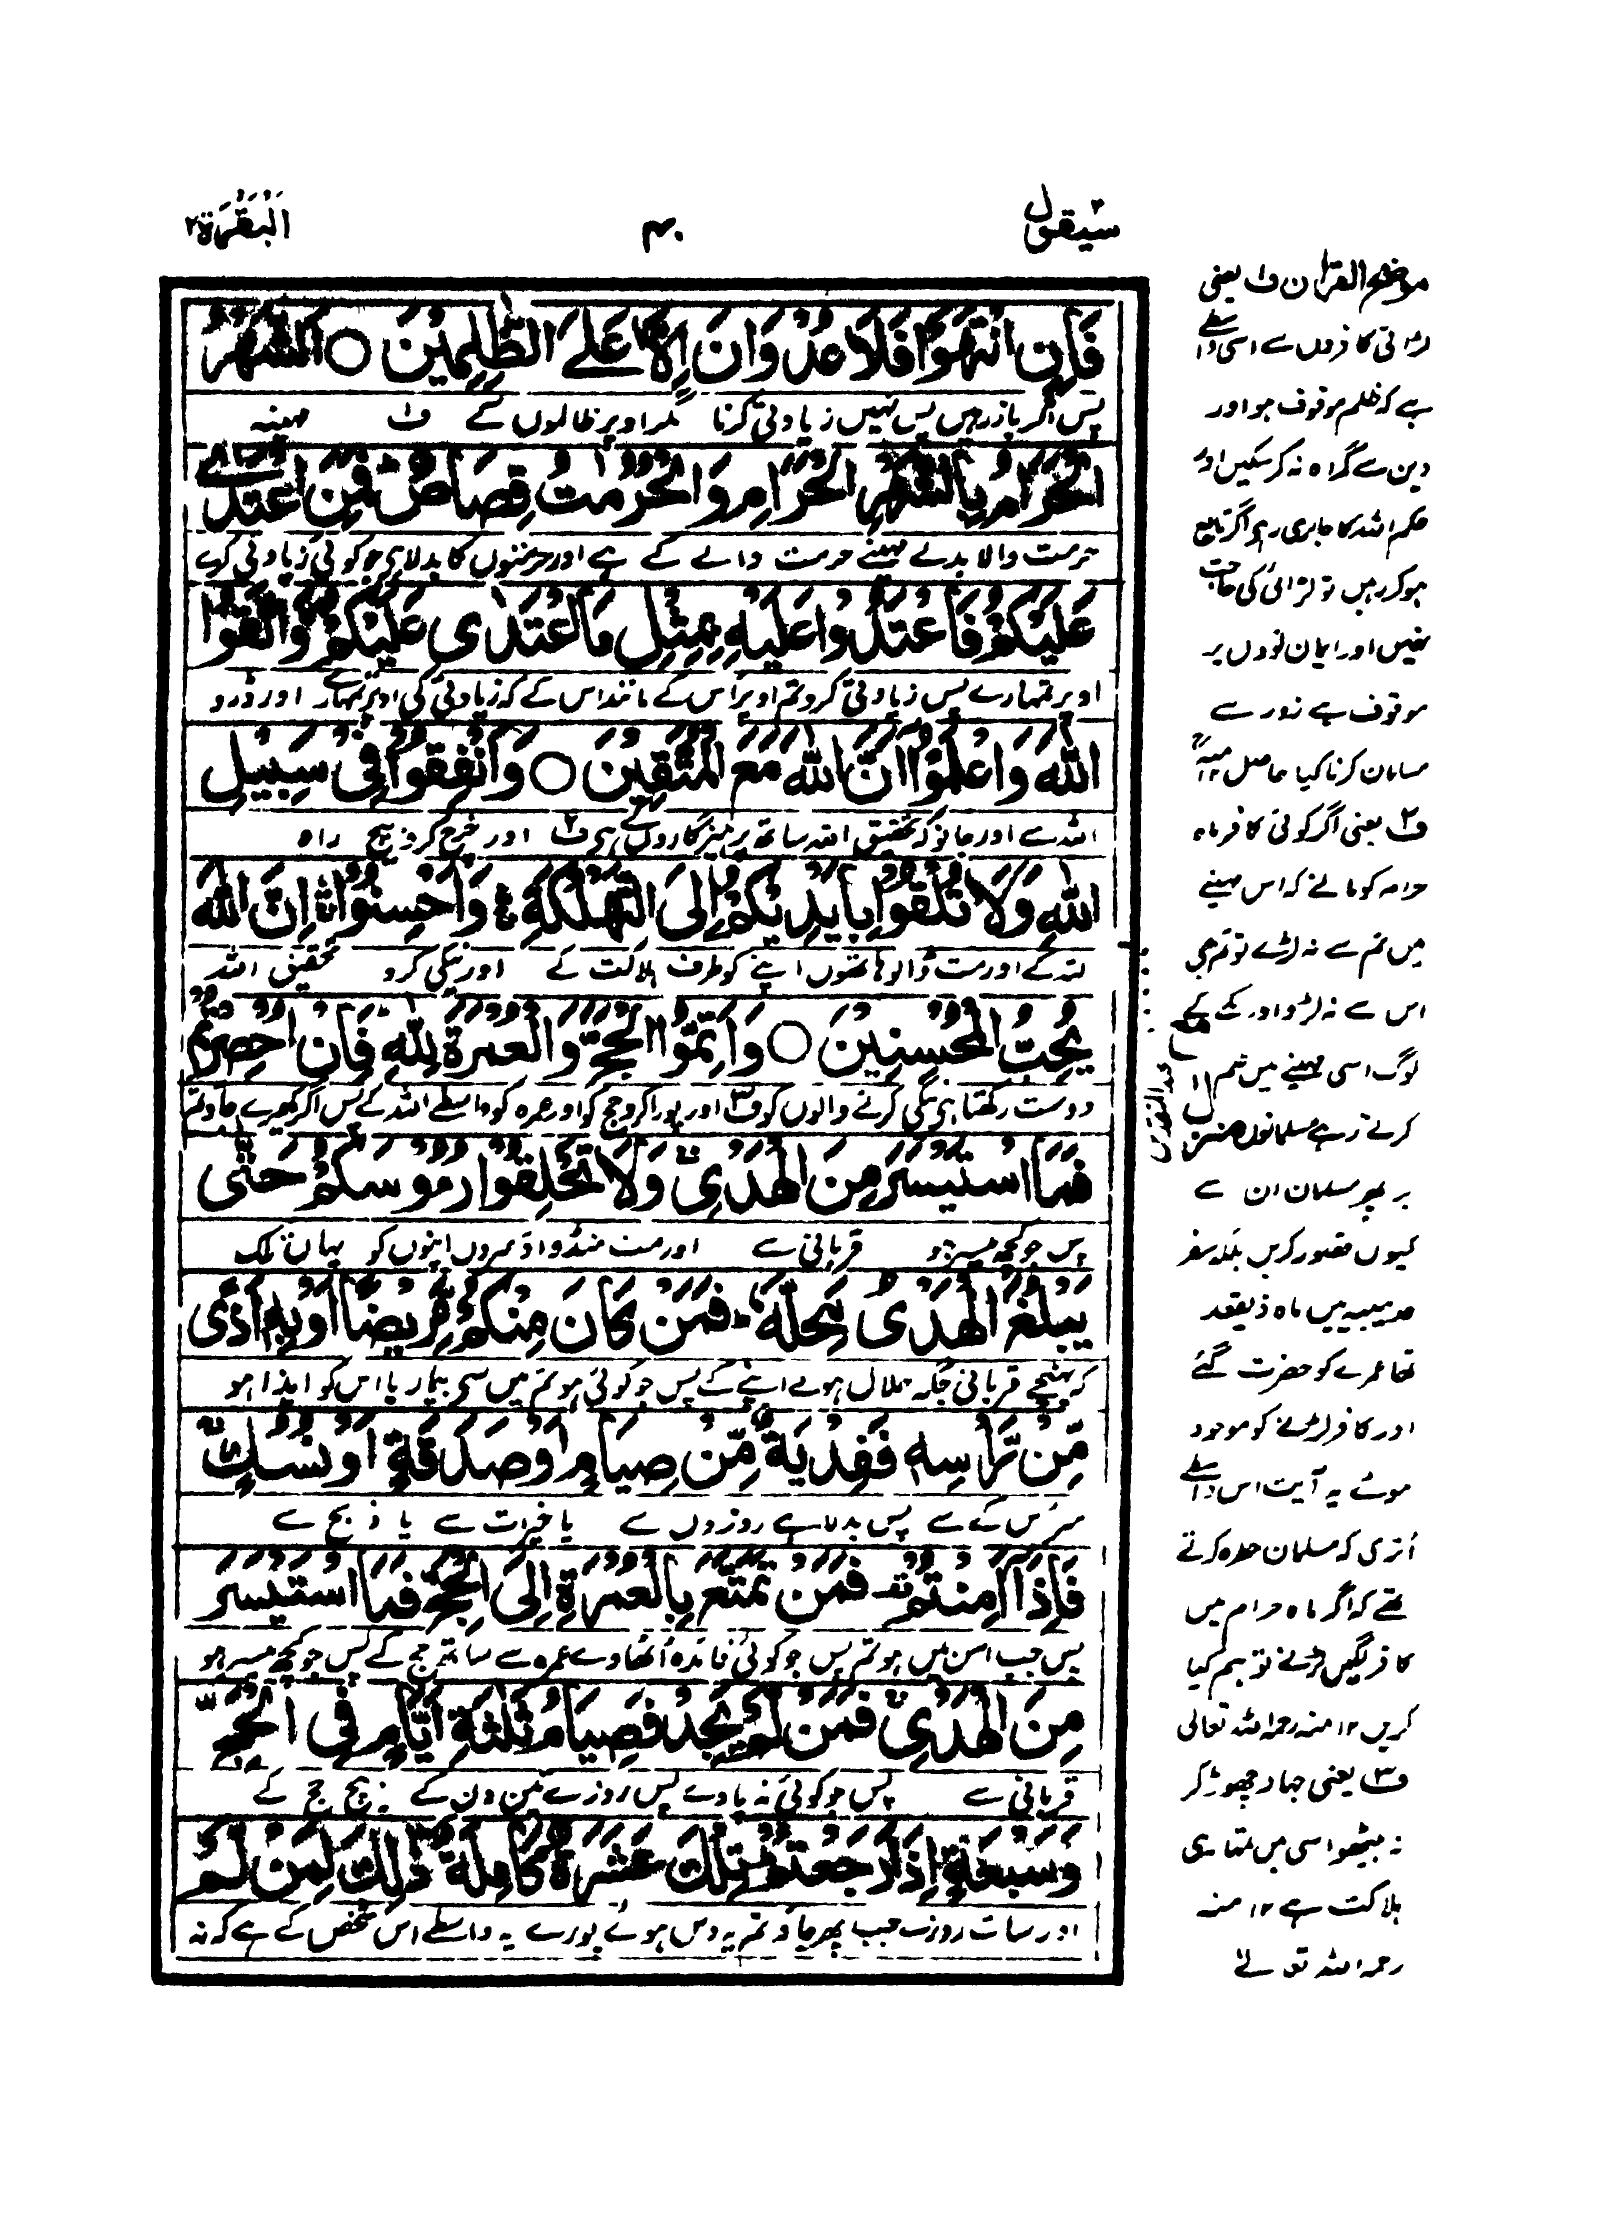 سيقول ٢
٤٠
البقرة ٢
فَاِنِ انْتَهَوْا فَلَا عُدْوَانَ اِلَّا عَلَى الظّٰلِمِيْنَ ○ اَلشَّهْرُ
پس اگر باز رہیں پس نہیں زیادتی کرنا مگر اوپر ظالموں کے ف١ مہینہ
الْحَرَامُ بِالشَّهْرِ الْحَرَامِ وَالْحُرُمٰتُ قِصَاصٌ ؕ فَمَنِ اعْتَدٰى
حرمت والا بدلے مہینے حرمت والے کے ہے اور حرمتوں کا بدلا ہی جو کوئی زیادتی کرے
عَلَيْكُمْ فَاعْتَدُوْا عَلَيْهِ بِمِثْلِ مَا اعْتَدٰى عَلَيْكُمْ وَاتَّقُوا
اوپر تمہارے پس زیادتی کرو تم اوپر اس کے مانند اس کے کہ زیادتی کی اوپر تمہارے اور ڈرو
اللّٰهَ وَاعْلَمُوْٓا اَنَّ اللّٰهَ مَعَ الْمُتَّقِيْنَ ○ وَاَنْفِقُوْا فِيْ سَبِيْلِ
اللہ سے اور جانو کہ تحقیق اللہ ساتھ پرہیزگاروں کے ہی ف٢ اور خرچ کرو بیچ راہ
اللّٰهِ وَلَا تُلْقُوْا بِاَيْدِيْكُمْ اِلَى التَّهْلُكَةِ وَاَحْسِنُوْا اِنَّ اللّٰهَ
اللہ کے اور مت ڈالو ہاتھوں اپنے کو طرف ہلاکت کے اور نیکی کرو تحقیق اللہ
يُحِبُّ الْمُحْسِنِيْنَ ○ وَاَتِمُّوا الْحَجَّ وَالْعُمْرَةَ لِلّٰهِ فَاِنْ اُحْصِرْتُمْ
دوست رکھتا ہی نیکی کرنے والوں کو ف٣ اور پورا کرو حج کو اور عمرہ کو واسطے اللہ کے پس اگر گھیرے جاؤ تم
فَمَا اسْتَيْسَرَ مِنَ الْهَدْيِ وَلَا تَحْلِقُوْا رُءُوْسَكُمْ حَتّٰى
پس جو کچھ میسر ہو قربانی سے اور مت منڈواؤ سروں اپنوں کو یہاں تک
يَبْلُغَ الْهَدْيُ مَحِلَّهٗ ؕ فَمَنْ كَانَ مِنْكُمْ مَّرِيْضًا اَوْ بِهٖٓ اَذًى
کہ پہنچے قربانی جگہ حلال ہونے اپنے کے پس جو کوئی ہو تم میں سی بیمار یا اس کو ایذا ہو
مِّنْ رَّاْسِهٖ فَفِدْيَةٌ مِّنْ صِيَامٍ اَوْ صَدَقَةٍ اَوْ نُسُكٍ
سر اس کے سے پس بدلا ہے روزوں سے یا خیرات سے یا ذبح سے
فَاِذَآ اَمِنْتُمْ فَمَنْ تَمَتَّعَ بِالْعُمْرَةِ اِلَى الْحَجِّ فَمَا اسْتَيْسَرَ
پس جب امن میں ہو تم پس جو کوئی فائدہ اُٹھاوے عمرہ سے ساتھ حج کے پس جو کچھ میسر ہو
مِنَ الْهَدْيِ فَمَنْ لَّمْ يَجِدْ فَصِيَامُ ثَلٰثَةِ اَيَّامٍ فِي الْحَجِّ
قربانی سے پس جو کوئی نہ پاوے پس روزے تین دن کے بیچ حج کے
وَسَبْعَةٍ اِذَا رَجَعْتُمْ تِلْكَ عَشَرَةٌ كَامِلَةٌ ذٰلِكَ لِمَنْ لَّمْ
اور سات روزے جب پھر جاؤ تم یہ دس ہوئے پورے یہ واسطے اس شخص کے ہے کہ نہ
موضح القرآن ف١ یعنی
لڑائی کافروں سے اسی واسطے
ہے کہ ظلم موقوف ہو اور
دین سے گمراہ نہ کر سکیں اور
حکم اللہ کا جاری رہی اگر تابع
ہو کر رہیں تو لڑائی کی حاجت
نہیں اور ایمان تو دل پر
موقوف ہے زور سے
مسلمان کرنا کیا حاصل ١٢ منہ
ف٢ یعنی اگر کوئی کافر ماہ
حرام کو مانے کہ اس مہینے
میں تم سے نہ لڑے تو تم بھی
اس سے نہ لڑو اور مکے کے
لوگ اسی مہینے میں ظلم
کرتے رہے مسلمانوں
پر پھر مسلمان ان سے
کیوں قصور کریں بلکہ سفر
حدیبیہ میں ماہ ذیقعد
تھا عمرے کو حضرت گئے
اور کافر لڑنے کو موجود
ہوئے یہ آیت اس واسطے
اُتری کہ مسلمان خطرہ کرتے
تھے کہ اگر ماہ حرام میں
کافر لگیں لڑنے تو ہم کیا
کریں ١٢ منہ رحمہ اللہ تعالی
ف٣ یعنی جہاد چھوڑ کر
نہ بیٹھو اسی میں تمہاری
ہلاکت ہے ١٢ منہ
رحمہ اللہ تعالے